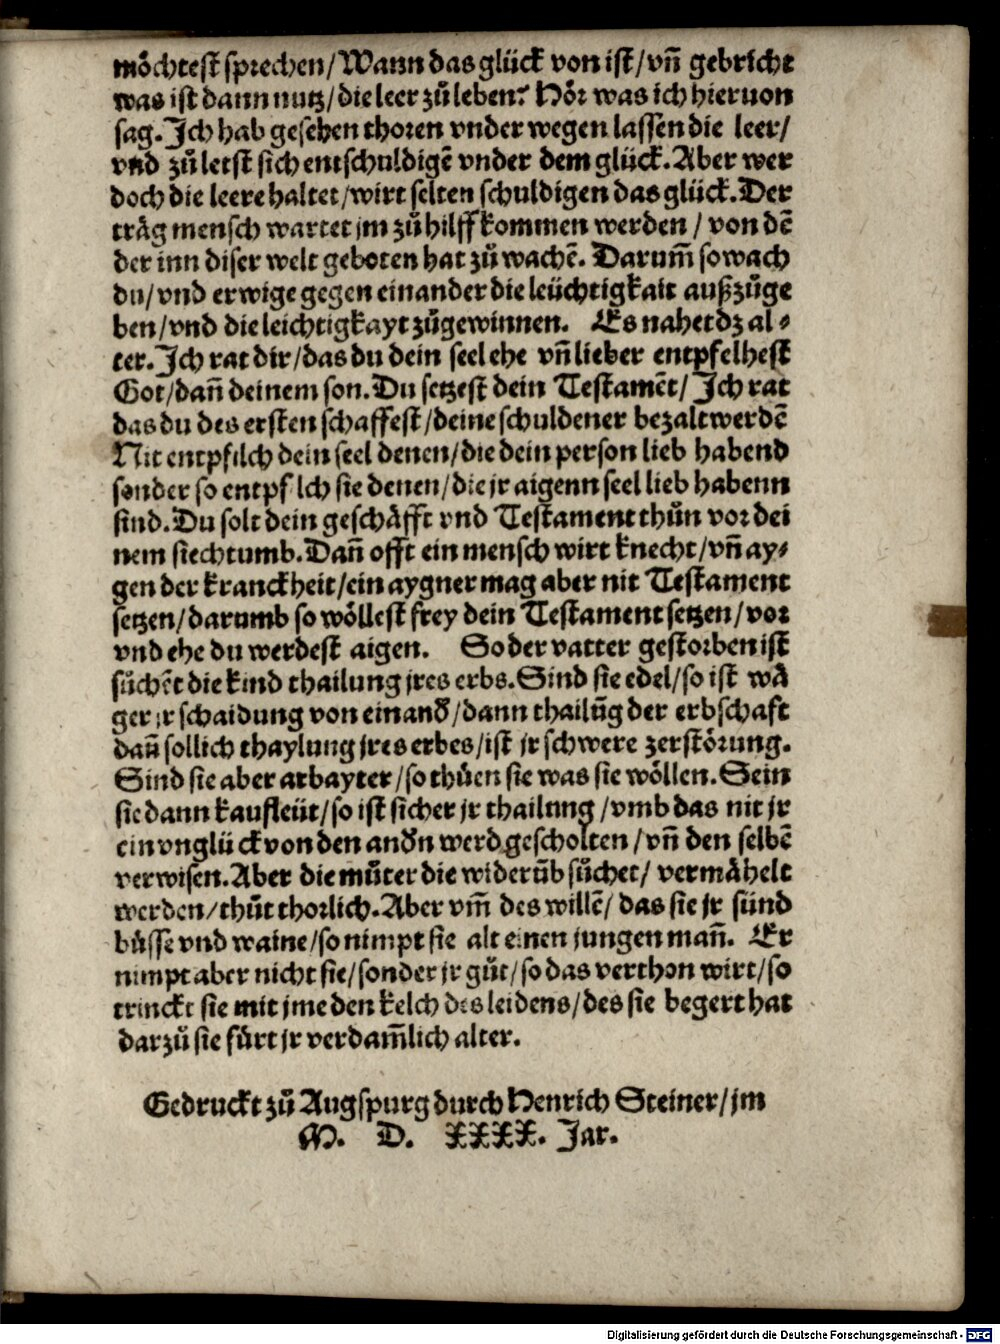 möchtest sprechen/Wann das glück von ist/vñ gebricht
was ist dann nutz/die leer zů leben? Hör was ich hieruon
sag. Jch hab gesehen thoren vnder wegen lassen die leer/
vnd zů letst sich entschuldigē vnder dem glück. Aber wer
doch die leere haltet/wirt selten schuldigen das glück. Der
träg mensch wartet jm zů hilff kommen werden/von dē
der inn diser welt geboten hat zů wachē. Darum̃ so wach
du/vnd erwige gegen einander die leüchtigkait außzůge
ben/vnd die leichtigkayt zůgewinnen. Es nahet dz al⸗
ter. Jch rat dir/das du dein seel ehe vñ lieber entpfelhest
Got/dañ deinem son. Du setzest dein Testamēt/Jch rat
das du des ersten schaffest/deine schuldener bezalt werdē
Nit entpfilch dein seel denen/die dein person lieb habend
sonder so entpf lch sie denen/die jr aigenn seel lieb habenn
sind. Du solt dein geschäfft vnd Testament thůn vor dei
nem siechtumb. Dañ offt ein mensch wirt knecht/vñ ay⸗
gen der kranckheit/ein aygner mag aber nit Testament
setzen/darumb so wöllest frey dein Testament setzen/vor
vnd ehe du werdest aigen. So der vatter gestorben ist
sůchēt die kind thailung jres erbs. Sind sie edel/so ist wä
ger jr schaidung von einanđ/dann thailūg der erbschaft
dañ sollich thaylung jres erbes/ist jr schwere zerstörung.
Sind sie aber arbayter/so thůen sie was sie wöllen. Sein
sie dann kaufleüt/so ist sicher jr thailung/vmb das nit jr
ein vnglück von den anđn werd gescholten/vñ den selbē
verwisen. Aber die můter die widerūb sůchet/vermähelt
werden/thůt thorlich. Aber vm̃ des willē/das sie jr sünd
büsse vnd waine/so nimpt sie alt einen jungen mañ. Er
nimpt aber nicht sie/sonder jr gůt/so das verthon wirt/so
trinckt sie mit jme den kelch des leidens/des sie begert hat
darzů sie fürt jr verdam̃lich alter.
Gedruckt zů Augspurg durch Henrich Steiner/jm
M. D. XXXX. Jar.
Digitalisierung gefördert durch die Deutsche Forschungsgemeinschaft - DFG